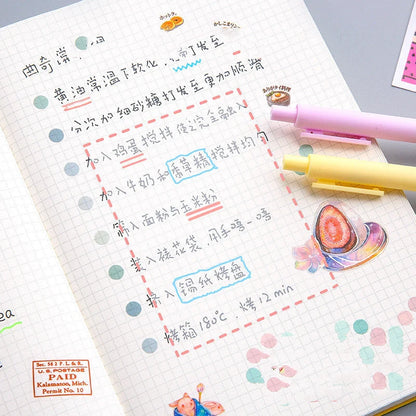 曲奇饼
黄油常温下软化
打发至
分次加细砂糖打发至更加顺滑
加入鸡蛋搅拌使之完全融入
加入牛奶和香草精搅拌均匀
筛入面粉与玉米粉
装入裱花袋 用手
挤入锡纸烤盘
烤箱180℃ 烤12min
ea
Sec. 562 P. L. & R.
U. S. POSTAGE
PAID
Kalamazoo, Mich.
Permit No. 10